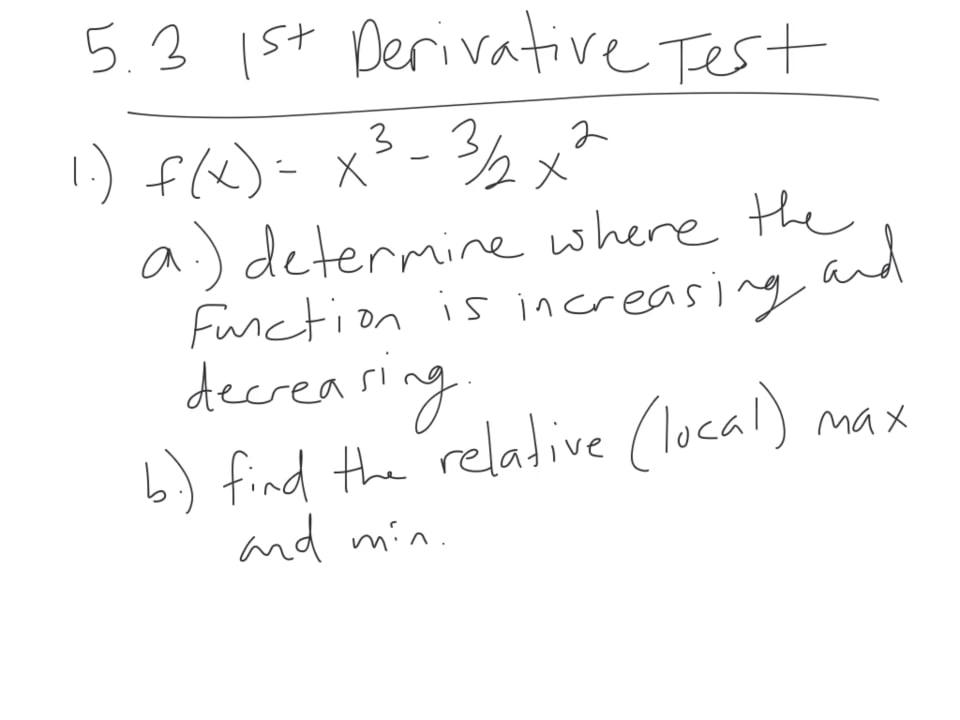 5.3 1st Derivative Test
1.) f(x) = x³ - 3/2 x²
a.) determine where the
Function is increasing and
decreasing.
b.) find the relative (local) max
and min.